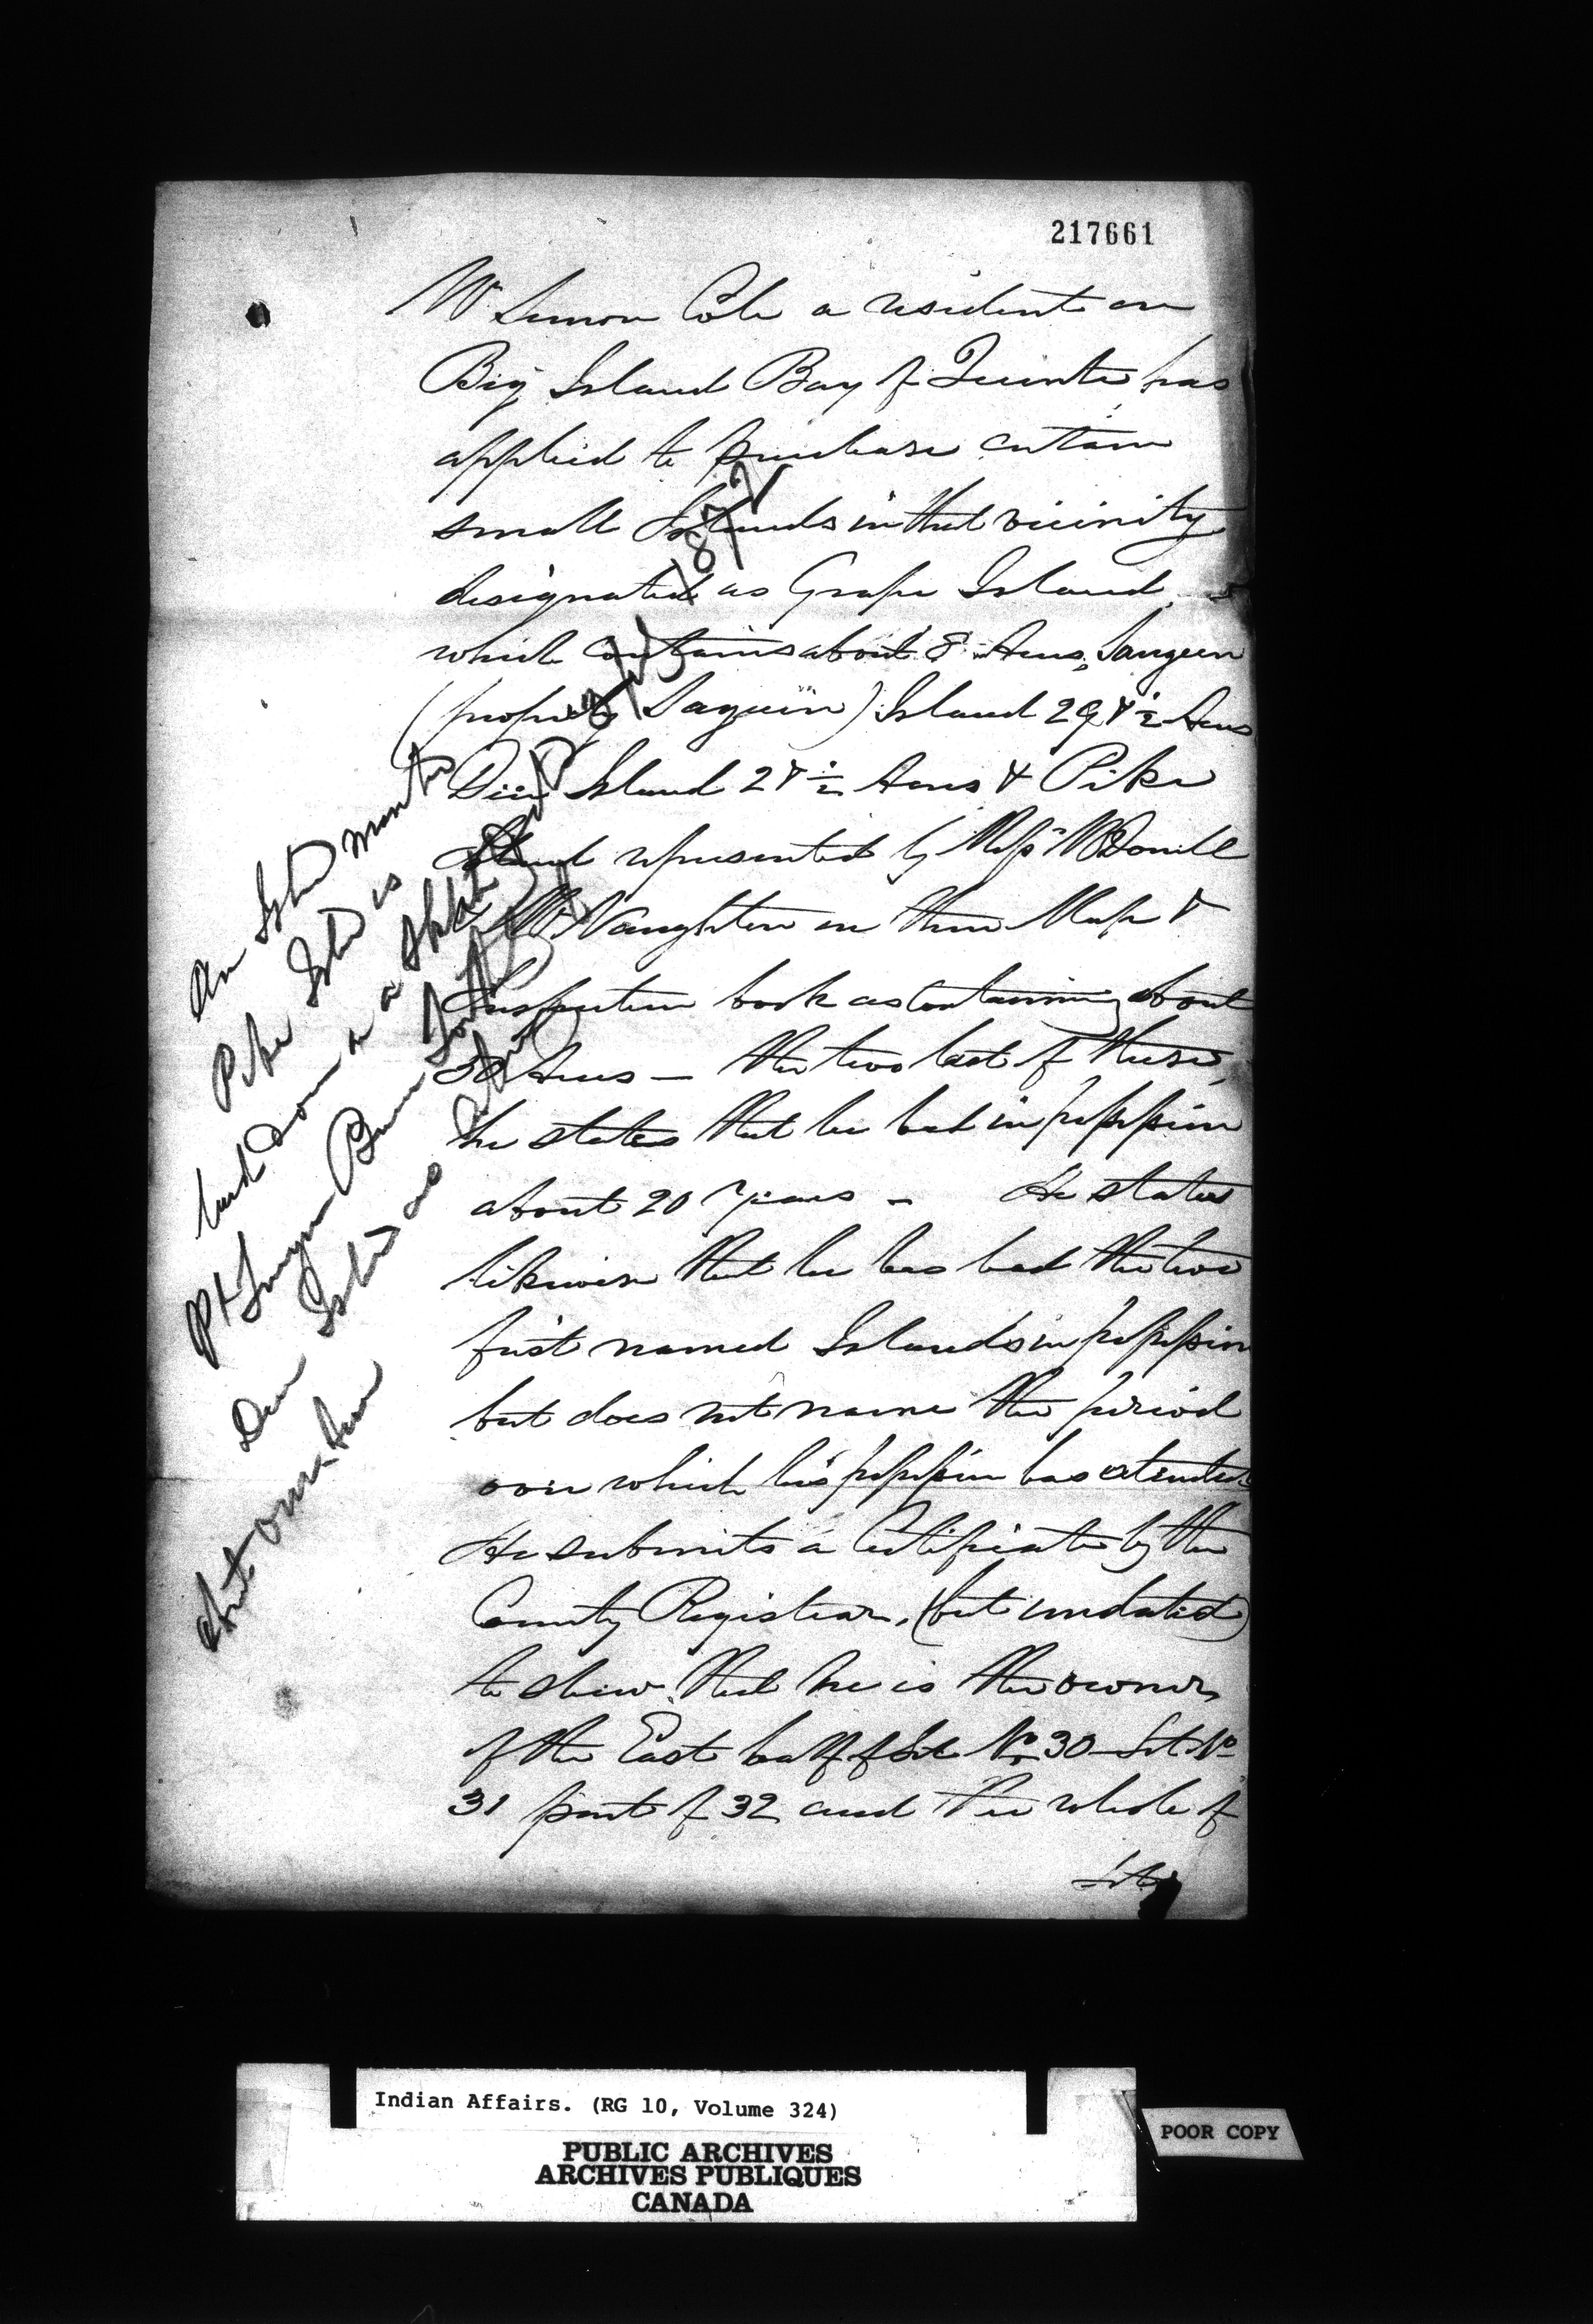 217661
Mr Simon Cole a resident on
Big Island Bay of Quinte has
applied to purchase certain
small Islands in that vicinity
designated as Grape Island
which contains about 8 Acres, Sangeen
(properly Saguin) Island 29 & ½ Acres
Island 2 & ½ Acres & Pike
Island represented by Messrs McDonell
& McNaughton on their Map &
Inspection book as containing about
30 Acres — the two last of these,
he states that he had in possession
about 20 Years — He states
likewise that he has had the two
first named Islands in possession
but does not name the period
over which his possession has extended
He submits a Certificate by the
County Registrar, (but undated)
to shew that he is the owner
of the East half of Lot No 30 — Lot No
31 part of 32 and the whole of
Lots
An Island
Pike Island is
laid down on a Sketch
Islands
about one
1871
Indian Affairs. (RG 10, Volume 324)
PUBLIC ARCHIVES
ARCHIVES PUBLIQUES
CANADA
POOR COPY